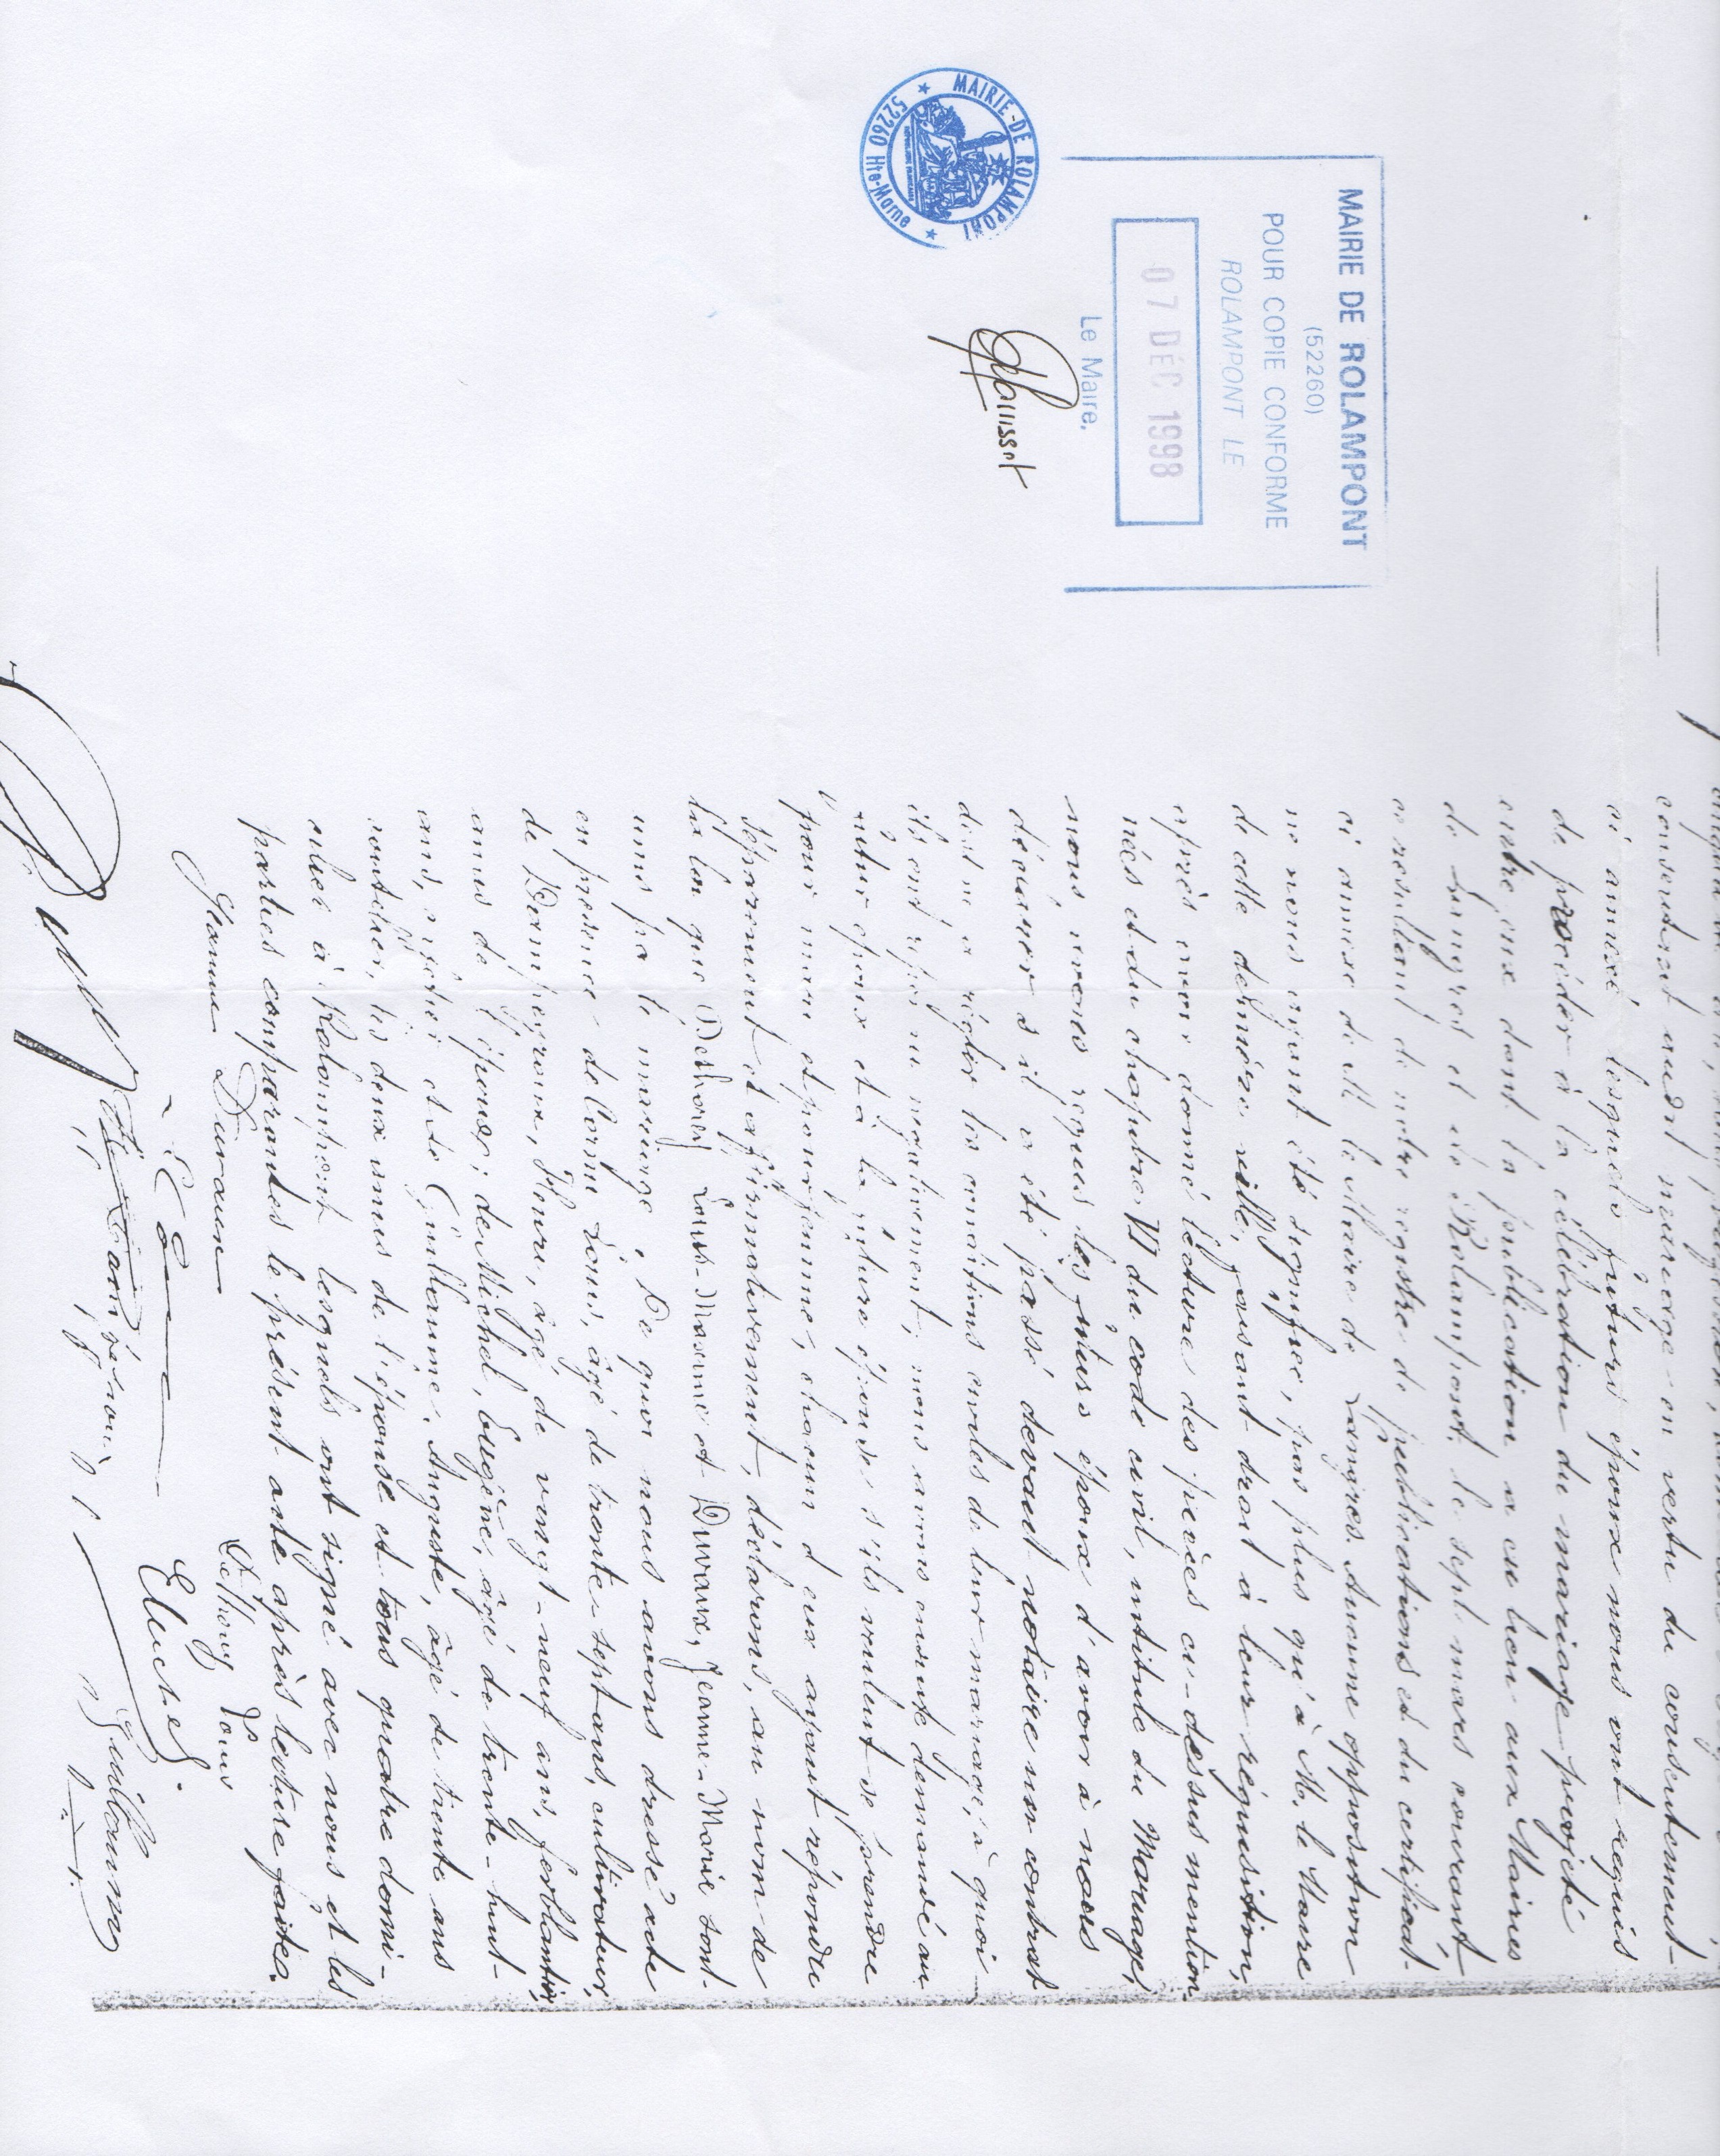 MAIRIE DE ROLAMPONT
(52260)
POUR COPIE CONFORME
ROLAMPONT LE
07 DÉC 1998
Le Maire,
MAIRIE-DE ROLAMPONT
52260 Hte-Marne
consentant audit mariage en vertu du consentement
ci annexé lesquels futurs époux nous ont requis
de procéder à la célébration du mariage projeté
entre eux dont la publication a eu lieu aux Mairies
de Langres et de Rolampont le sept mars courant
ce résultant de notre registre de publications et du certificat
ci annexé de M. le Maire de Langres. Aucune opposition
ne nous ayant été signifiée, pas plus qu'à M. le Maire
de cette dernière ville, faisant droit à leur réquisition,
après avoir donné lecture des pièces ci-dessus mention
nées et du chapitre VI du code civil, intitulé du Mariage,
nous avons requis les futurs époux d'avoir à nous
déclarer s'il a été passé devant notaire un contrat
destiné à régler les conditions civiles de leur mariage, à quoi
ils ont répondu négativement; nous avons ensuite demandé au
futur époux et à la future épouse s'ils veulent se prendre
pour mari et pour femme, chacun d'eux ayant répondu
séparément et affirmativement, déclarons, au nom de
la loi que Dethorey, Louis-Maxime et Duraux, Jeanne-Marie sont
unis par le mariage. De quoi nous avons dressé acte
en présence de Louis, âgé de trente-sept ans, cultivateur,
de Damperoux, Henri, âgé de vingt-neuf ans, ferblantier,
amis de l'époux; de Michel, Eugène, âgé de trente-huit
ans, et de Guillaume, Auguste, âgé de trente ans
rentier, les deux amis de l'épouse et tous quatre domi-
ciliés à Rolampont lesquels ont signé avec nous et les
parties comparantes le présent acte après lecture faite.
Jeanne Duraux
Dethorey Louis
Guillaume